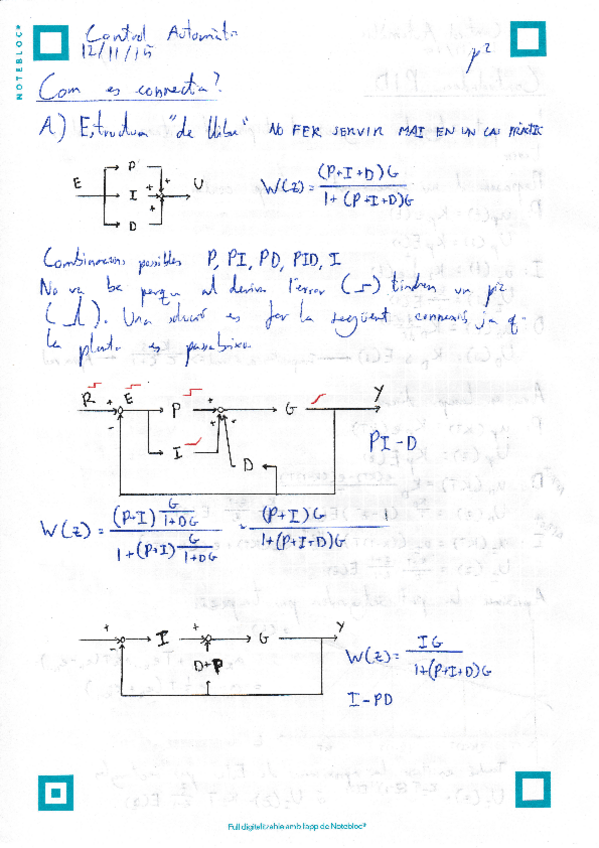 NOTEBLOC®
Control Automàtic
12/11/15
p2
Com es connecta?
A) Estructura "de llibre" NO FER SERVIR MAI EN UN CAS PRÀCTIC
E P I D + + + U
W(z) = (P+I+D)G / 1+(P+I+D)G
Combinacions possibles P, PI, PD, PID, I
No va bé perquè al derivar l'error ( ) tindrem un pic
( ). Una solució es fer la següent connexió ja q-
la planta es passabaixa
R + - E P + + - G Y
I
D
PI-D
W(z) = (P+I) G/1+DG / 1+(P+I) G/1+DG = (P+I)G / 1+(P+I+D)G
+ - I + - G Y
D+P
W(z) = IG / 1+(P+I+D)G
I-PD
Full digitalitzable amb l'app de Notebloc®